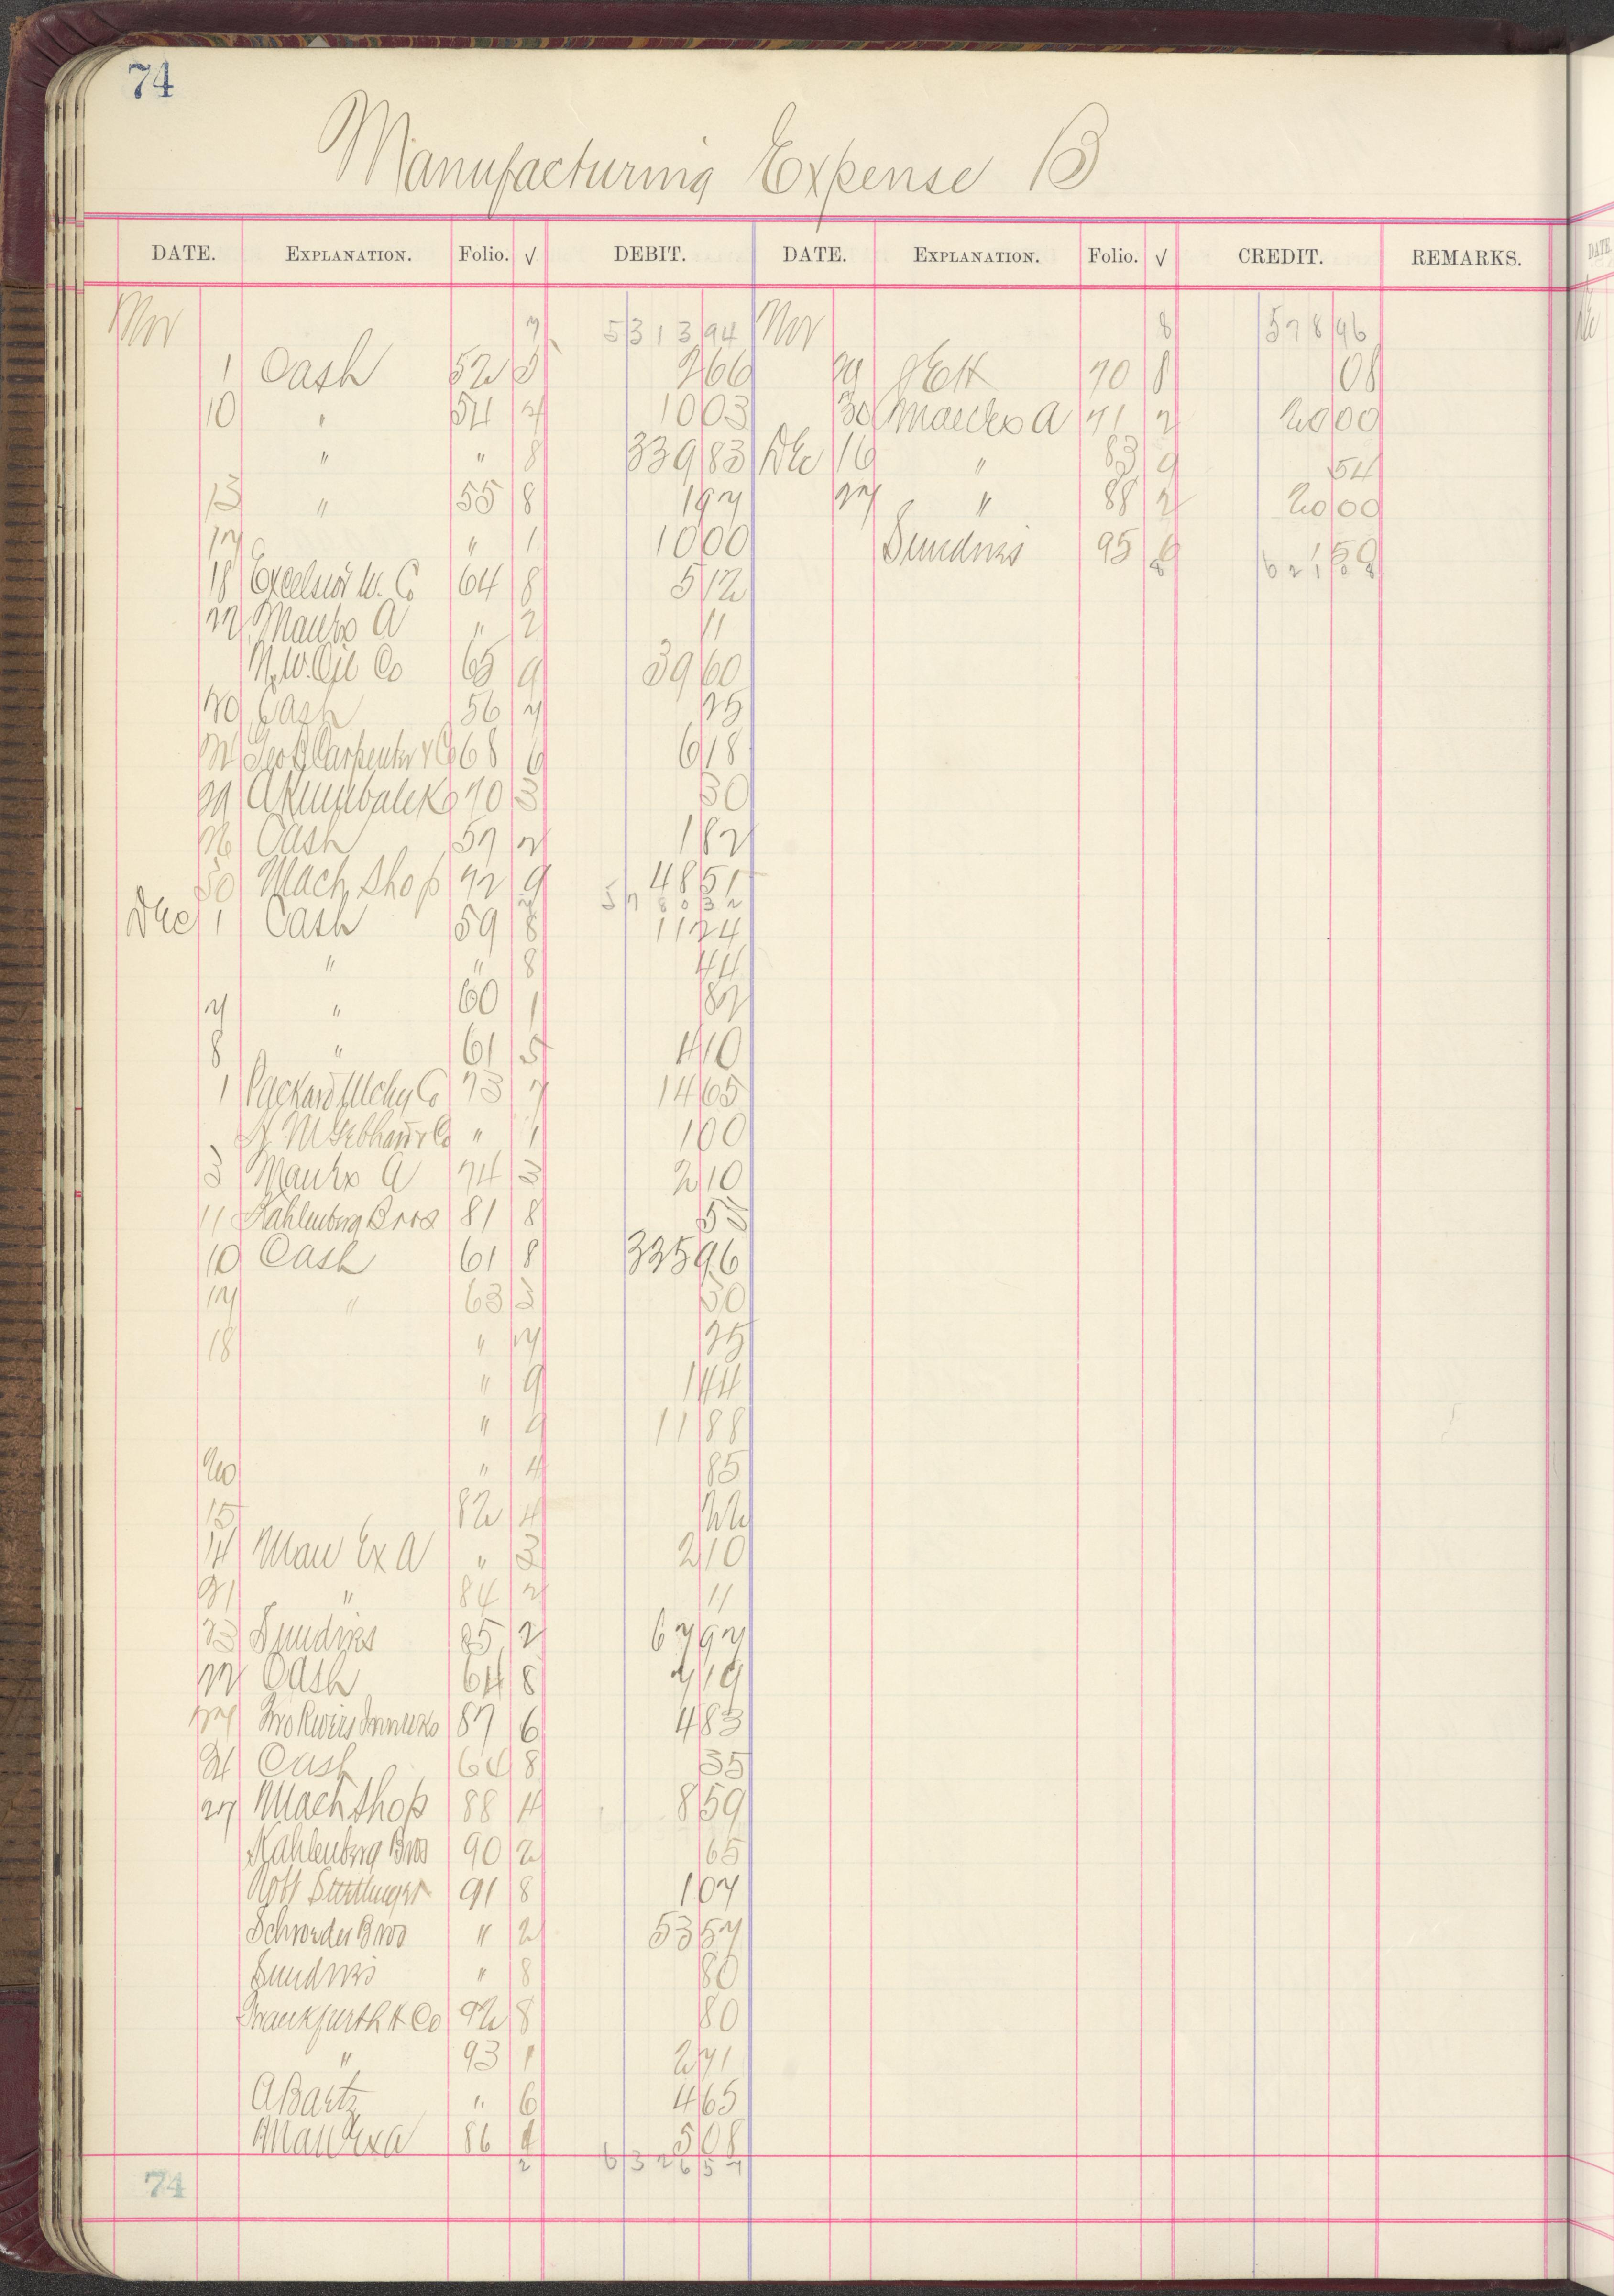 74
Manufacturing Expense B
DATE. EXPLANATION. Folio. √ DEBIT. DATE. EXPLANATION. Folio. √ CREDIT. REMARKS.
Nov 7 5313 94 Nov 8 578 96
1 Cash 52 5 2 66 29 70 8 08
10 " 54 4 10 03 30 A 71 2 20 00
" " 8 339 83 Dec 16 " 83 9 54
13 " 55 8 1 97 27 " 88 2 20 00
17 " 1 10 00 Sundries 95 6 1 50
8 621 08
18 Excelsior W. Co 64 8 5 12
22 A " 2 11
N.W. Oil Co 65 9 39 60
20 Cash 56 7 25
Geo B Carpenter & Co 68 6 6 18
29 70 3 30
26 Cash 57 2 1 82
30 Mach Shop 72 9 48 51
2 5780 32
Dec 1 Cash 59 8 11 24
" " 8 44
7 " 60 1 82
8 " 61 5 4 10
1 Packard Mchy Co 73 7 14 65
" 1 1 00
3 A 74 3 2 10
11 Kahlenberg Bros 81 8 55
10 Cash 61 8 335 96
17 " 63 3 30
18 " 7 25
" 9 1 44
" 9 11 88
20 " 4 85
15 82 4 22
14 Man Ex A " 3 2 10
21 " 84 2 11
23 Sundries 85 2 67 97
22 Cash 64 8 7 19
87 6 4 83
24 Cash 64 8 35
27 Mach Shop 88 4 8 59
Kahlenberg Bros 90 2 65
91 8 1 07
Schroeder Bros " 2 53 57
Sundries " 8 80
Frankfurth H Co 92 8 80
" 93 1 2 71
A Bartz " 6 4 65
Man Ex A 86 4 5 08
2 6326 57
74